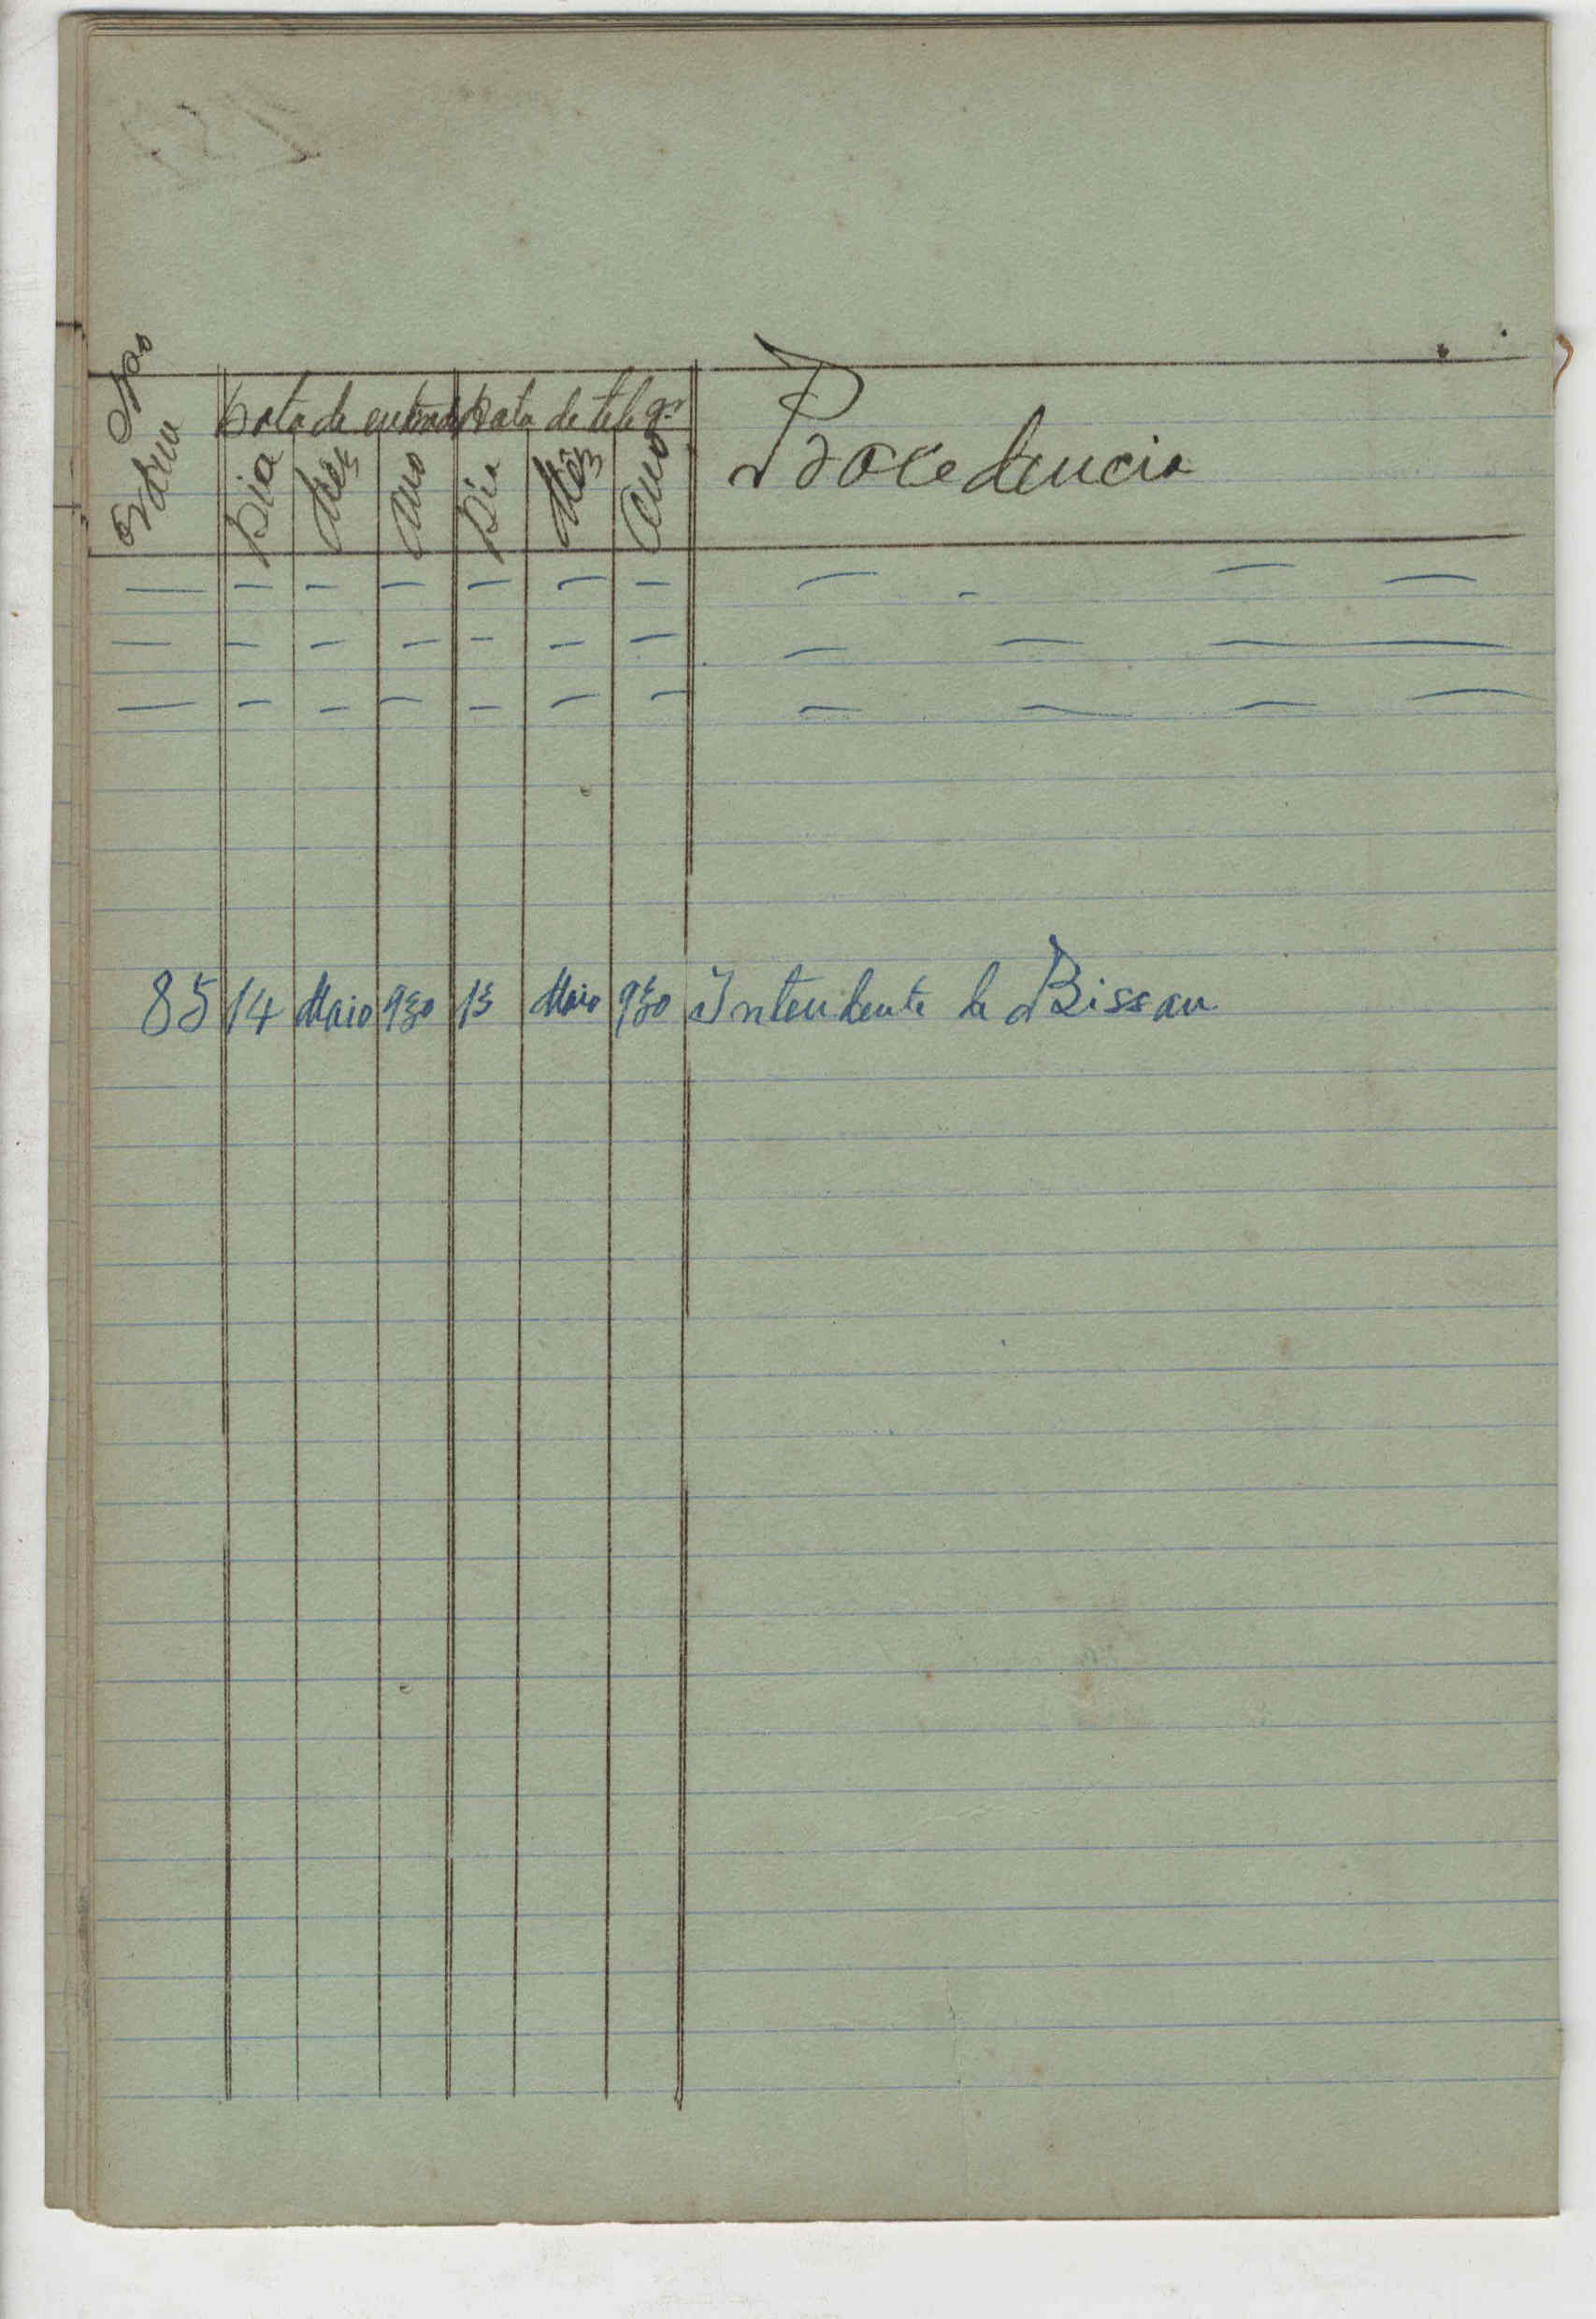 Nº Data de entrada Data de telegr Procedencia
Ordem Dia Mês Ano Dia Mês Ano
— — — — — — — — - — —
— — — — — — — — — — —
— — — — — — — — — — —
85 14 Maio 930 13 Maio 930 Intendente de Bissau